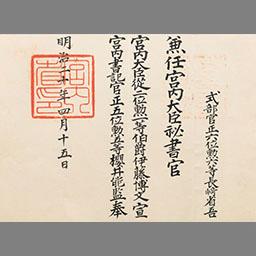 式部官正六位勲六等長崎省吾
兼任宮内大臣秘書官
宮内大臣從二位勲一等伯爵伊藤博文宣
宮内書記官正五位勲五等櫻井能監奉
明治二十年四月十五日